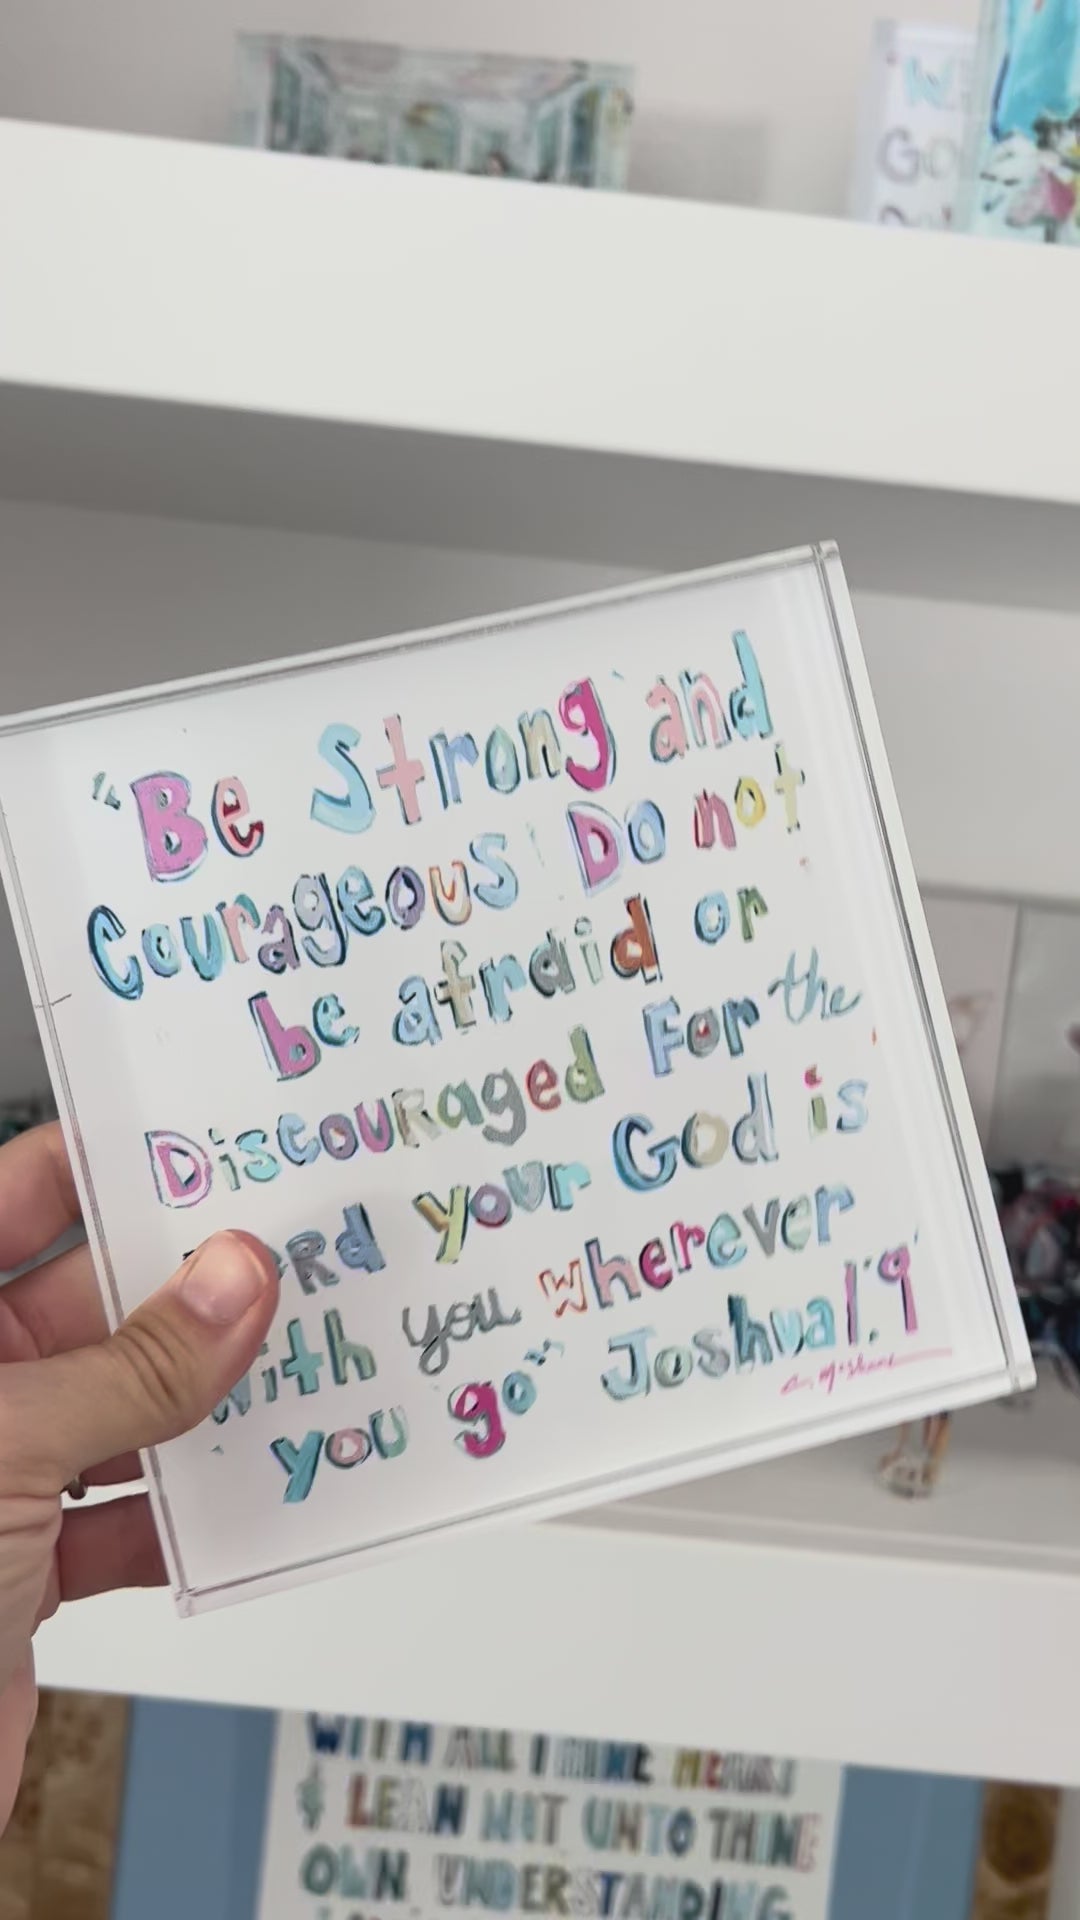 Go
"Be Strong and
Courageous! Do not
be afraid or
Discouraged For the
Lord your God is
with you wherever
you go" Joshua 1:9
WITH ALL THINE HEART
& LEAN NOT UNTO THINE
OWN UNDERSTANDING